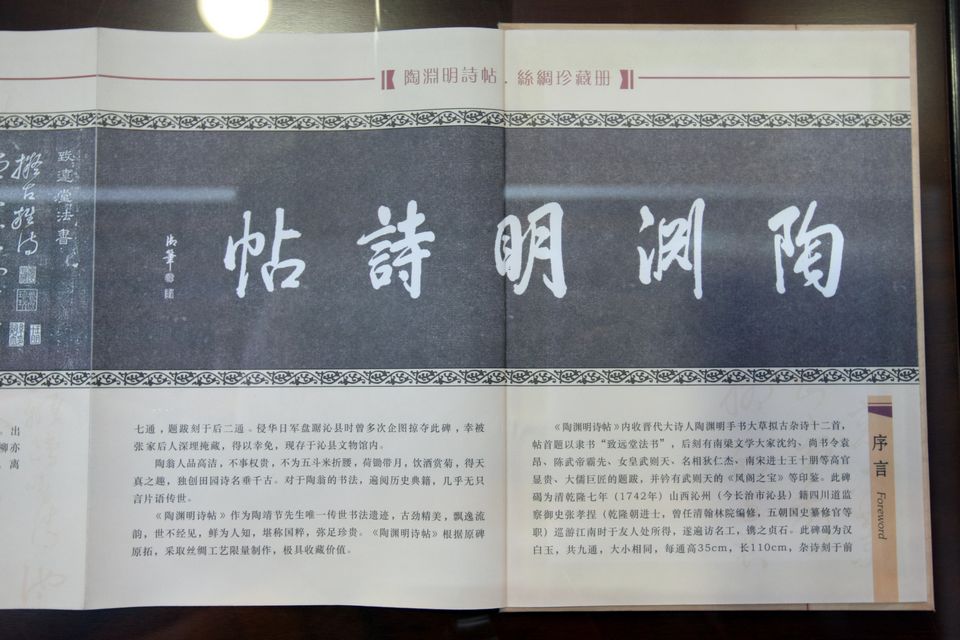 陶淵明詩帖．絲綢珍藏册
陶渊明詩帖
御筆
致遠堂法書
擬古雜詩
序言
Foreword
《陶渊明诗帖》内收晋代大诗人陶渊明手书大草拟古杂诗十二首，
帖首题以隶书“致远堂法书”，后刻有南梁文学大家沈约、尚书令袁
昂、陈武帝霸先、女皇武则天、名相狄仁杰、南宋进士王十朋等高官
显贵、大儒巨匠的题跋，并钤有武则天的《凤阁之宝》等印鉴。此碑
碣为清乾隆七年（1742年）山西沁州（今长治市沁县）籍四川道监
察御史张孝捏（乾隆朝进士，曾任清翰林院编修，五朝国史纂修官等
职）巡游江南时于友人处所得，遂遍访名工，镌之贞石。此碑碣为汉
白玉，共九通，大小相同，每通高35cm，长110cm，杂诗刻于前
七通，题跋刻于后二通。侵华日军盘踞沁县时曾多次企图掠夺此碑，幸被
张家后人深埋掩藏，得以幸免，现存于沁县文物馆内。
陶翁人品高洁，不事权贵，不为五斗米折腰，荷锄带月，饮酒赏菊，得天
真之趣，独创田园诗名垂千古。对于陶翁的书法，遍阅历史典籍，几乎无只
言片语传世。
《陶渊明诗帖》作为陶靖节先生唯一传世书法遗迹，古劲精美，飘逸流
韵，世不经见，鲜为人知，堪称国粹，弥足珍贵。《陶渊明诗帖》根据原碑
原拓，采取丝绸工艺限量制作，极具收藏价值。
。出
柳亦
。离